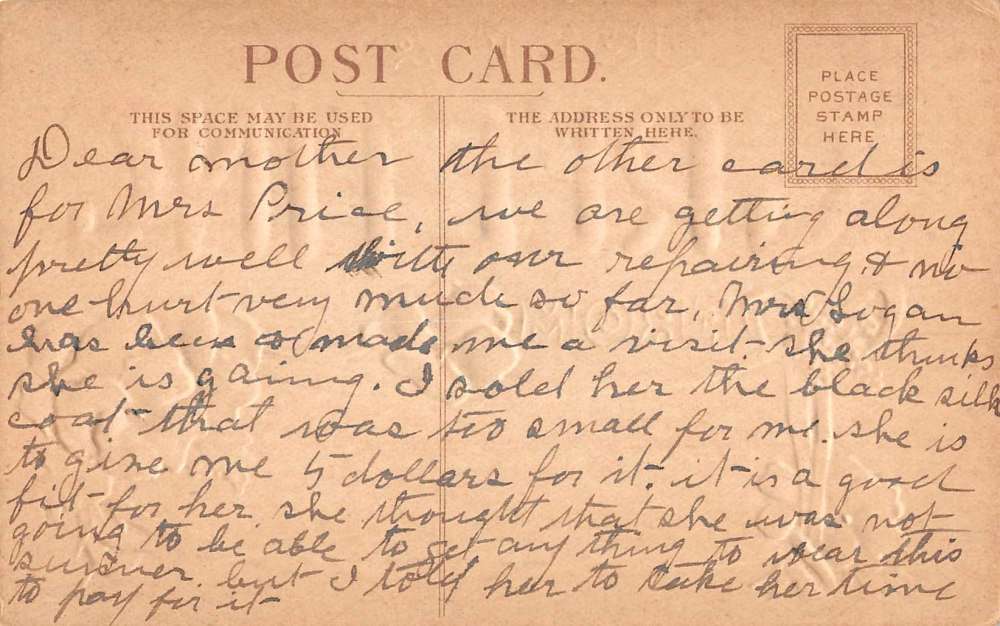 POST CARD.
PLACE
POSTAGE
STAMP
HERE
THIS SPACE MAY BE USED
FOR COMMUNICATION
THE ADDRESS ONLY TO BE
WRITTEN HERE.
Dear mother the other card is
for Mrs Price, we are getting along
pretty well with our repairing, & no
one hurt very much so far, Mrs Logan
has been & made me a visit. she thinks
she is gaing. I sold her the black silk
coat that was too small for me. she is
to give me 5 dollars for it. it is a good
fit for her. she thought that she was not
going to be able to get any thing to wear this
summer. but I told her to take her time
to pay for it